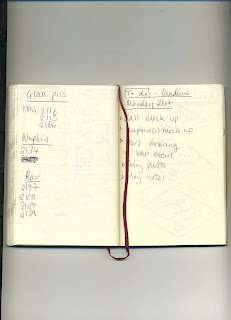 Glass pics
IMG 2113
2115
2166
Napkin
2134
Bar
2177
2108
2107
2121
To do - Deadline
Monday 21st
mock up
napkin(s) mock up
drawing
bar
photos
notes